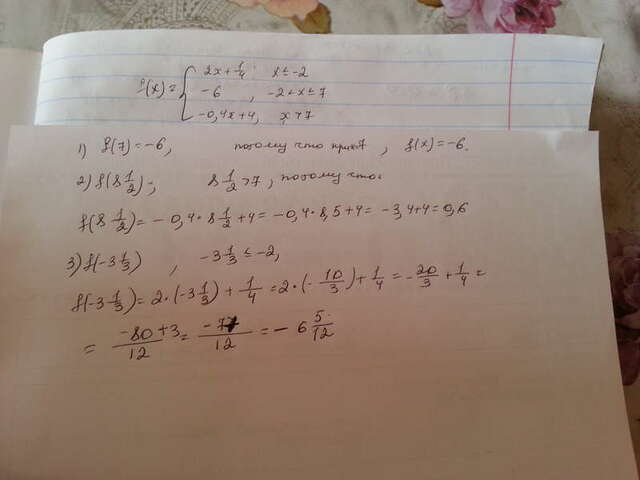 f(x) = { 2x + 1/4, x ≤ -2
-6, -2 < x ≤ 7
-0,4x + 4, x > 7
1) f(7) = -6, потому что при x=7, f(x) = -6.
2) f(8 1/2); 8 1/2 > 7, потому что:
f(8 1/2) = -0,4 * 8 1/2 + 4 = -0,4 * 8,5 + 4 = -3,4 + 4 = 0,6
3) f(-3 1/3), -3 1/3 ≤ -2,
f(-3 1/3) = 2 · (-3 1/3) + 1/4 = 2 · (-10/3) + 1/4 = -20/3 + 1/4 =
= (-80 + 3)/12 = -77/12 = -6 5/12